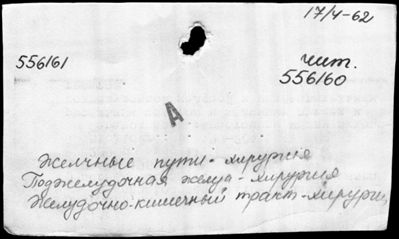 17/4-62
556161 чит.
556160
А
Желчные пути - хирургия
Поджелудочная желуд - хирургия
Желудочно-кишечный тракт - хирурги